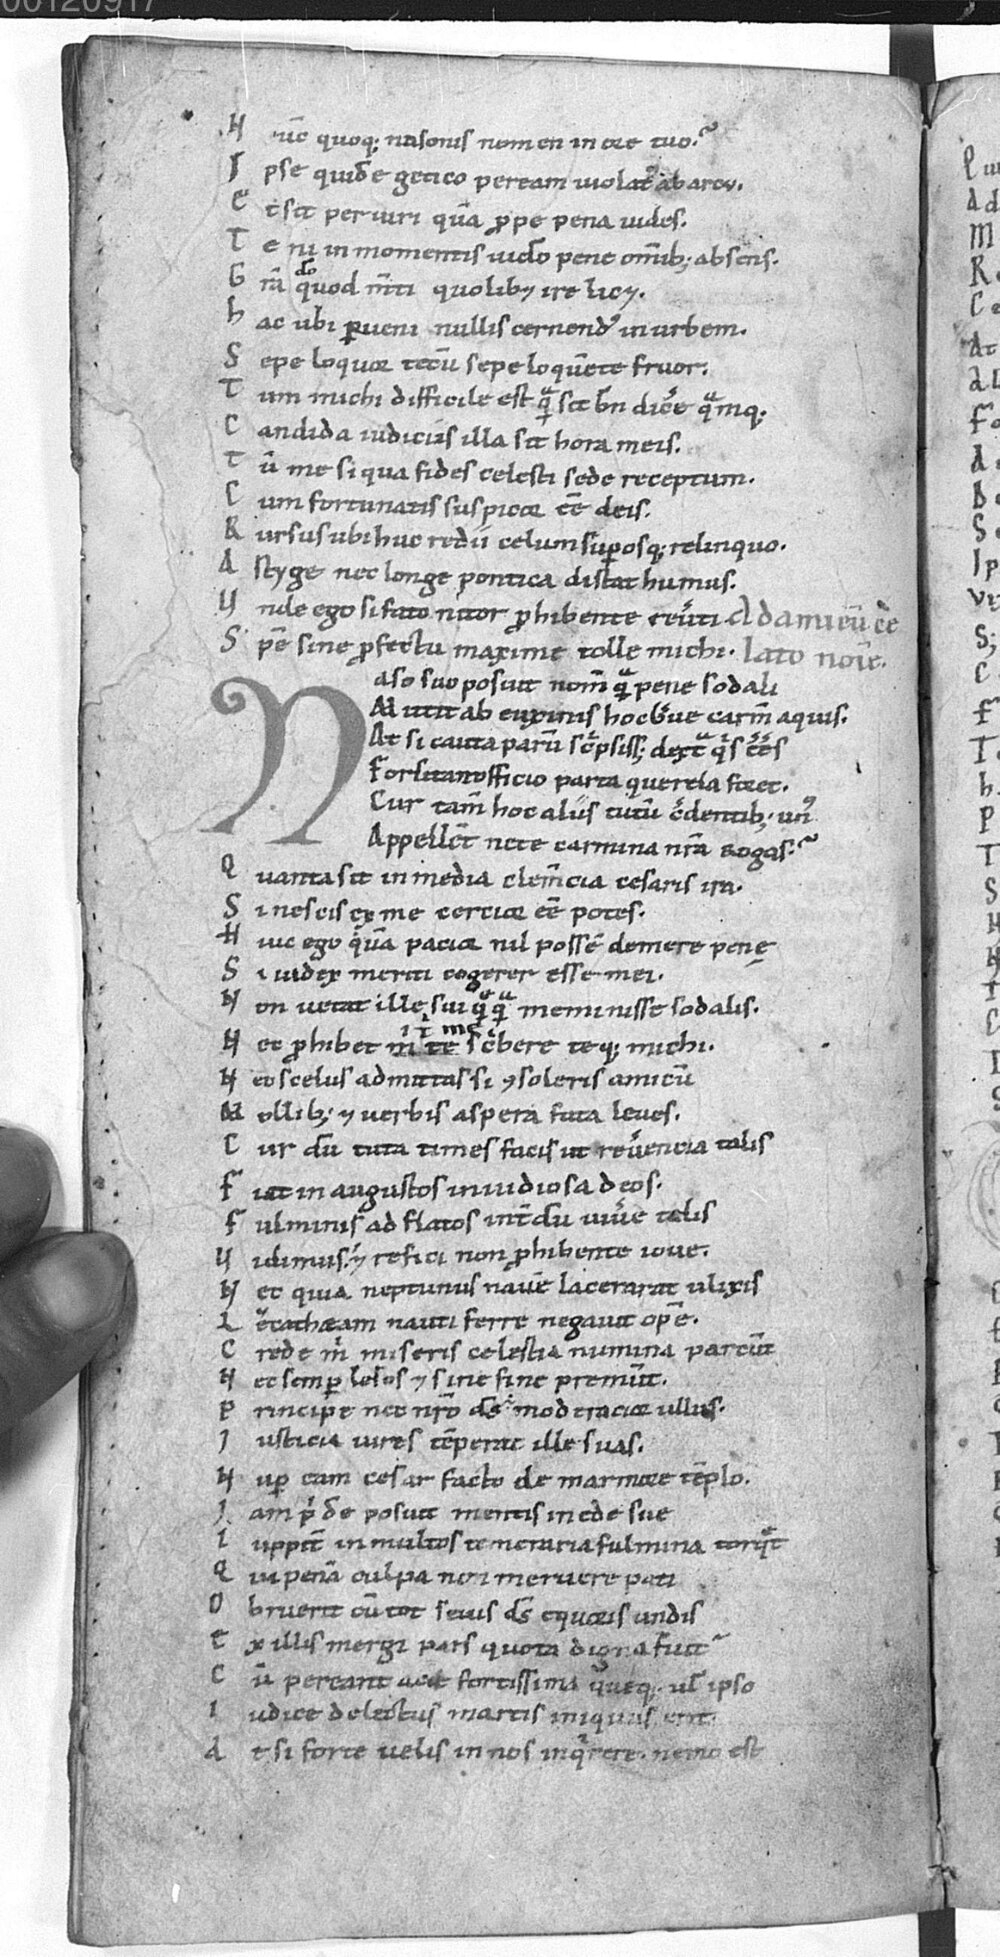 00120917
Nūc quoq; nasonis nomen in ore tuo.
Ipse quidē getico peream uiolatꝰ ab arcu.
Et sit periuri quā ꝓpe pena uides.
Te ni in momentis uideo pene om̄ib; absens.
Grā quod m̄ti quolibꝫ ire licꝫ.
hac ubi ꝑueni nullis cernendꝰ in urbem.
Sepe loquor tecū sepe loquēte fruor.
Tum michi difficile est qͣ sit bn̄ dicͤe qͣmq;
Candida iudiciis illa sit hora meis.
Tū me si qua fides celesti sede receptum.
Cum fortunatis suspicor ēē deis.
Rursus ubi huc redii celum suꝑosq; relinquo.
A styge nec longe pontica distat humus.
Vnde ego si fato nitor ꝓhibente reuͥti Ad amicū cē
Spē sine ꝓfectu maxime tolle michi. lato noīe.
Naso suo posuit nom̄ qͥ pene sodali
Mittit ab euxinis hoc bͤue carm̄ aquis.
At si cauta parū scͥpsiss; dextͣ qͥs ēēs
Forsitan officio parta querela foret.
Cur tam̄ hoc aliis tutū cͤdentib; unꝰ
Appellēt ne te carmina nr̄a rogas.
Quanta sit in media clem̄cia cesaris ira.
Si nescis ex me certior ēē potes.
Huic ego quā pacior nil possē demere penę
Si iudex meriti cogerer esse mei.
Non uetat ille sui qͥqͣ meminisse sodalis.
Nec ꝓhibet m̄ te scͥbere teq; michi.
Nec scelus admittas si ꝯsoleris amicū
Mollib; ⁊ uerbis aspera fata leues.
Cur dū tuta times facis ut reuͤencia talis
Fiat in augustos inuidiosa deos.
Fulminis adflatos int̄dū uiuͤe telis
Vidimus. ⁊ refici non ꝓhibente ioue.
Nec quia neptunus nauē lacerarat ulixis
Leucotheam nauti ferre negauit opē.
Crede m̄ miseris celestia numina parcūt
Nec semꝑ lesos ⁊ sine fine premūt.
Principe nec nr̄o ds̄ moderacior ullus.
Iusticia uires tēperat ille suas.
Nuꝑ eam cesar facto de marmore tēplo.
Iam pͥdē posuit mentis in ede sue
Iuppit̄ in multos temeraria fulmina torqͤt
Qui penā culpa non meruere pati
Obruerit cū tot seuis ds̄ equoris undis
Ex illis mergi pars quota digna fuit
Cū pereant acie fortissima queq; ul̄ ipso
Iudice delectus martis iniquus erit.
At si forte uelis in nos inqͥrere. nemo est